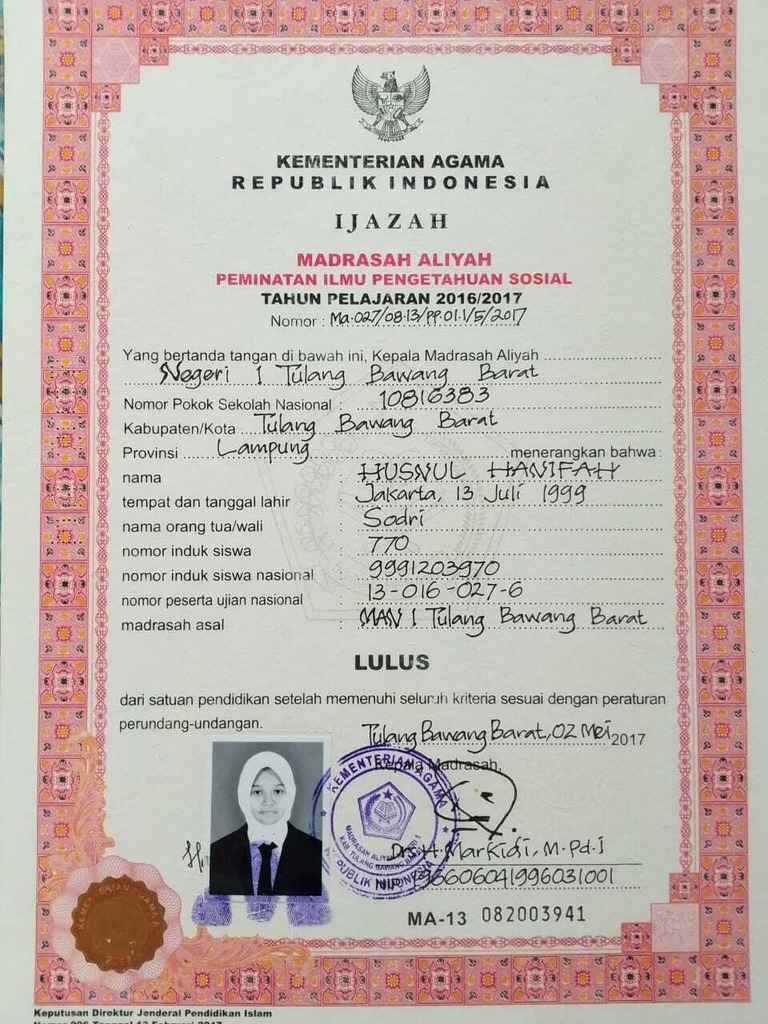 KEMENTERIAN AGAMA
REPUBLIK INDONESIA
IJAZAH
MADRASAH ALIYAH
PEMINATAN ILMU PENGETAHUAN SOSIAL
TAHUN PELAJARAN 2016/2017
Nomor : Ma.027/08.13/PP.01.1/5/2017
Yang bertanda tangan di bawah ini, Kepala Madrasah Aliyah
Negeri 1 Tulang Bawang Barat
Nomor Pokok Sekolah Nasional : 10816383
Kabupaten/Kota Tulang Bawang Barat
Provinsi Lampung menerangkan bahwa :
nama : HUSNUL HANIFAH
tempat dan tanggal lahir : Jakarta, 13 Juli 1999
nama orang tua/wali : Sodri
nomor induk siswa : 770
nomor induk siswa nasional : 9991203970
nomor peserta ujian nasional : 13-016-027-6
madrasah asal : MAN 1 Tulang Bawang Barat
LULUS
dari satuan pendidikan setelah memenuhi seluruh kriteria sesuai dengan peraturan
perundang-undangan.
Tulang Bawang Barat, 02 Mei 2017
Kepala Madrasah,
KEMENTERIAN AGAMA
MADRASAH ALIYAH
KAB TULANG BAWANG
REPUBLIK INDONESIA
Drs. H. Markidi, M.Pd.I
NIP. 196606041996031001
MA-13 082003941
KEMENTERIAN AGAMA
Keputusan Direktur Jenderal Pendidikan Islam